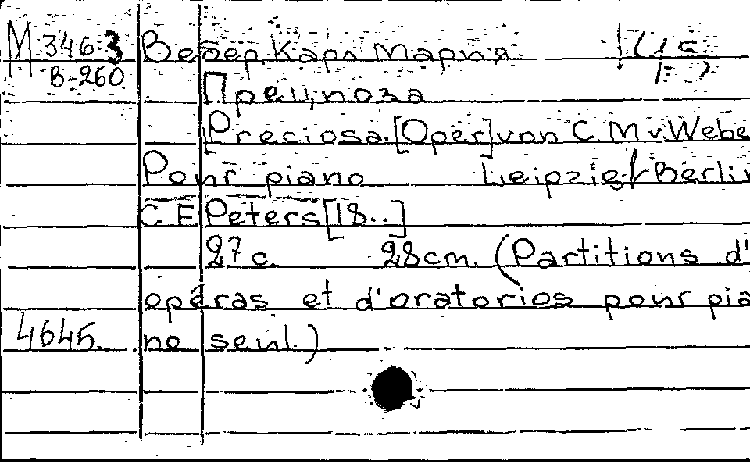 М 346.3 Вебер, Карл Мария
В-260
Прециоза
Preciosa. [Oper] von C. M. v. Webe
Pour piano Leipzig/Berlin
C.F. Peters [18..]
27 c. 28 cm. (Partitions d'
opéras et d'oratorios pour pia
4645. no seul.)